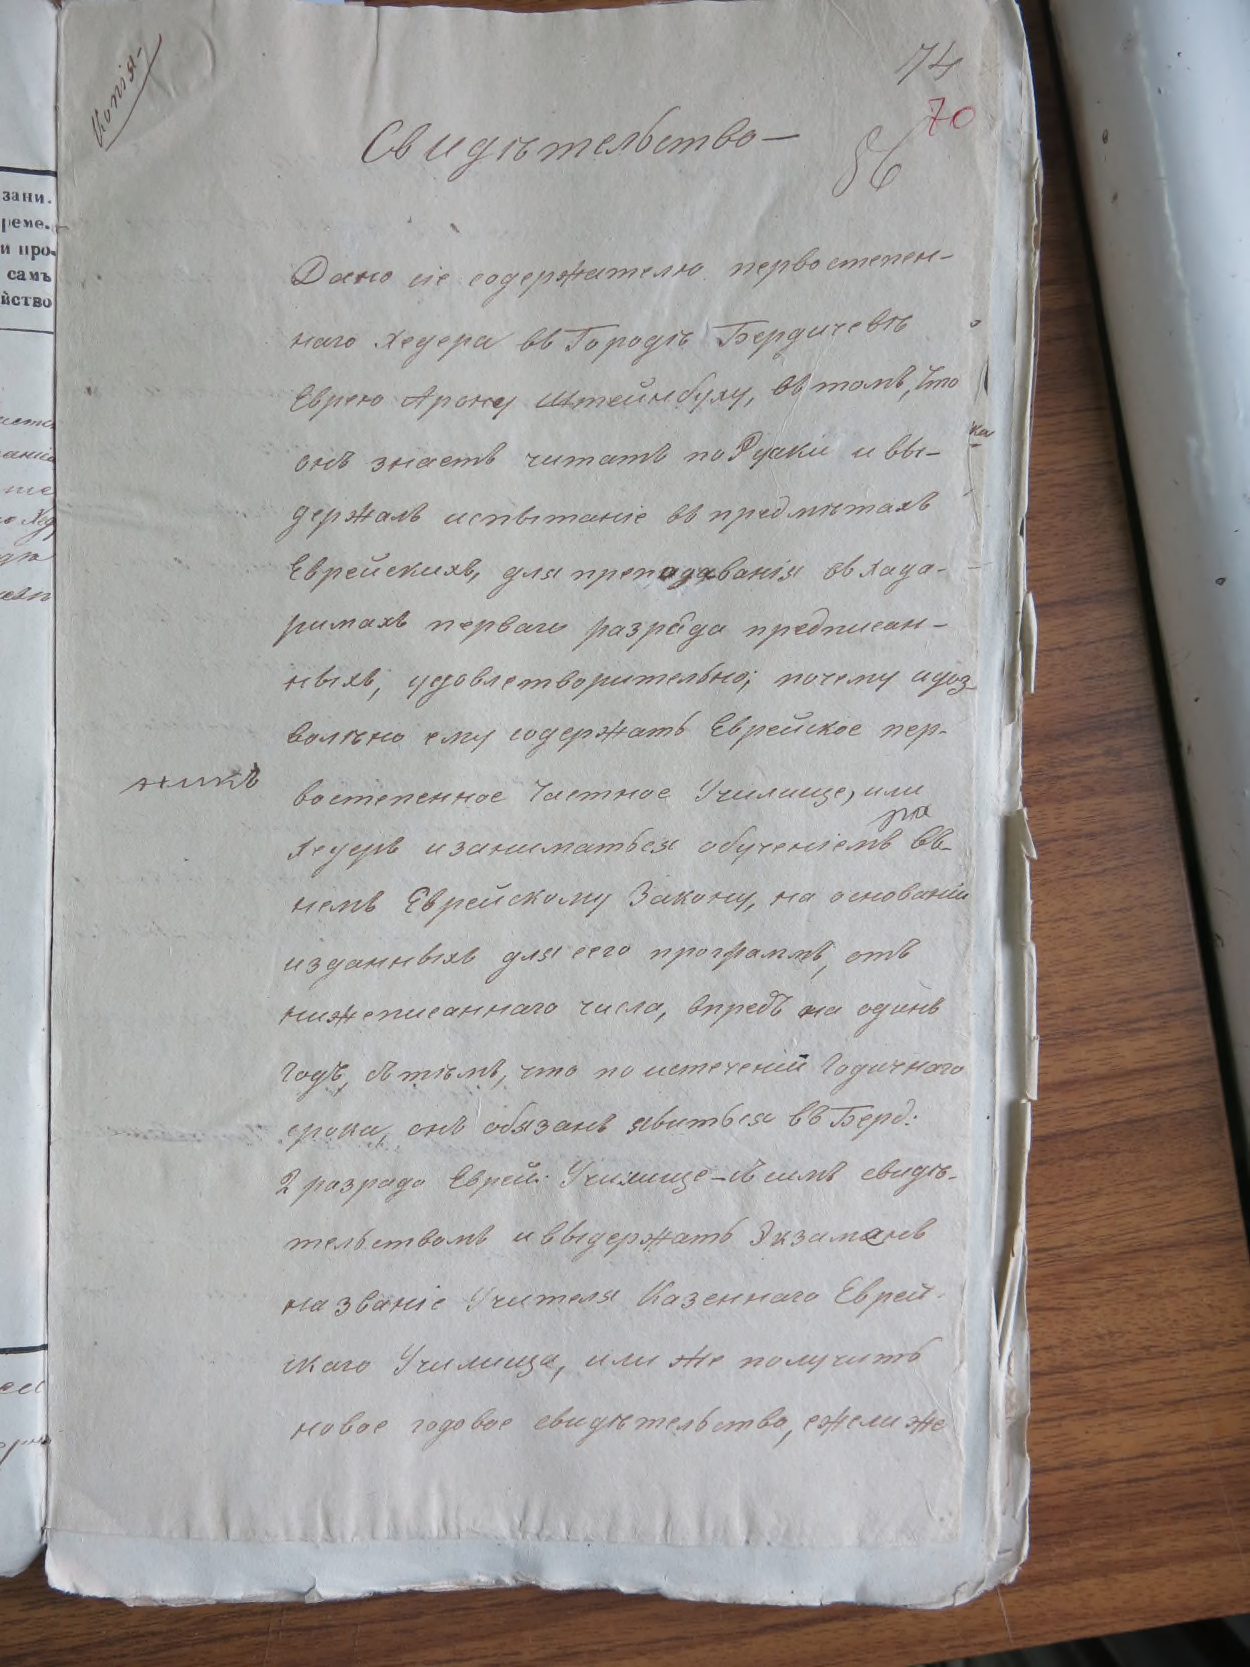 Копія
74
70
86
Свидѣтельство
Дано сіе содержателю первостепен-
наго Хедера въ Городѣ Бердичевѣ
Еврею Арону Штейнбуху, въ томъ, что
онъ знаетъ читать по Руски и вы-
держалъ испытаніе въ предмѣтахъ
Еврейскихъ, для преподаванія въ Хада-
римахъ перваго разряда предписан-
ныхъ, удовлетворительно; почему и доз-
волѣно ему содержать Еврейское пер-
востепенное Частное Училище, или
Хедеръ и заниматься обученіемъ въ
немъ Еврейскому Закону, на основаніи
изданныхъ для сего программъ, отъ
нижеписаннаго числа, впредъ на одинъ
годъ, съ тѣмъ, что по истеченій Годичнаго
срока, онъ обязанъ явиться въ Берд:
2 разряда Еврей: Училище съ симъ свидѣ-
тельствомъ и выдержать Экзаменъ
на званіе Учителя Казеннаго Еврей-
скаго Училища, или же получить
новое годовое свидѣтельство, ежели же
зани.
реме.
и про-
самъ
йство